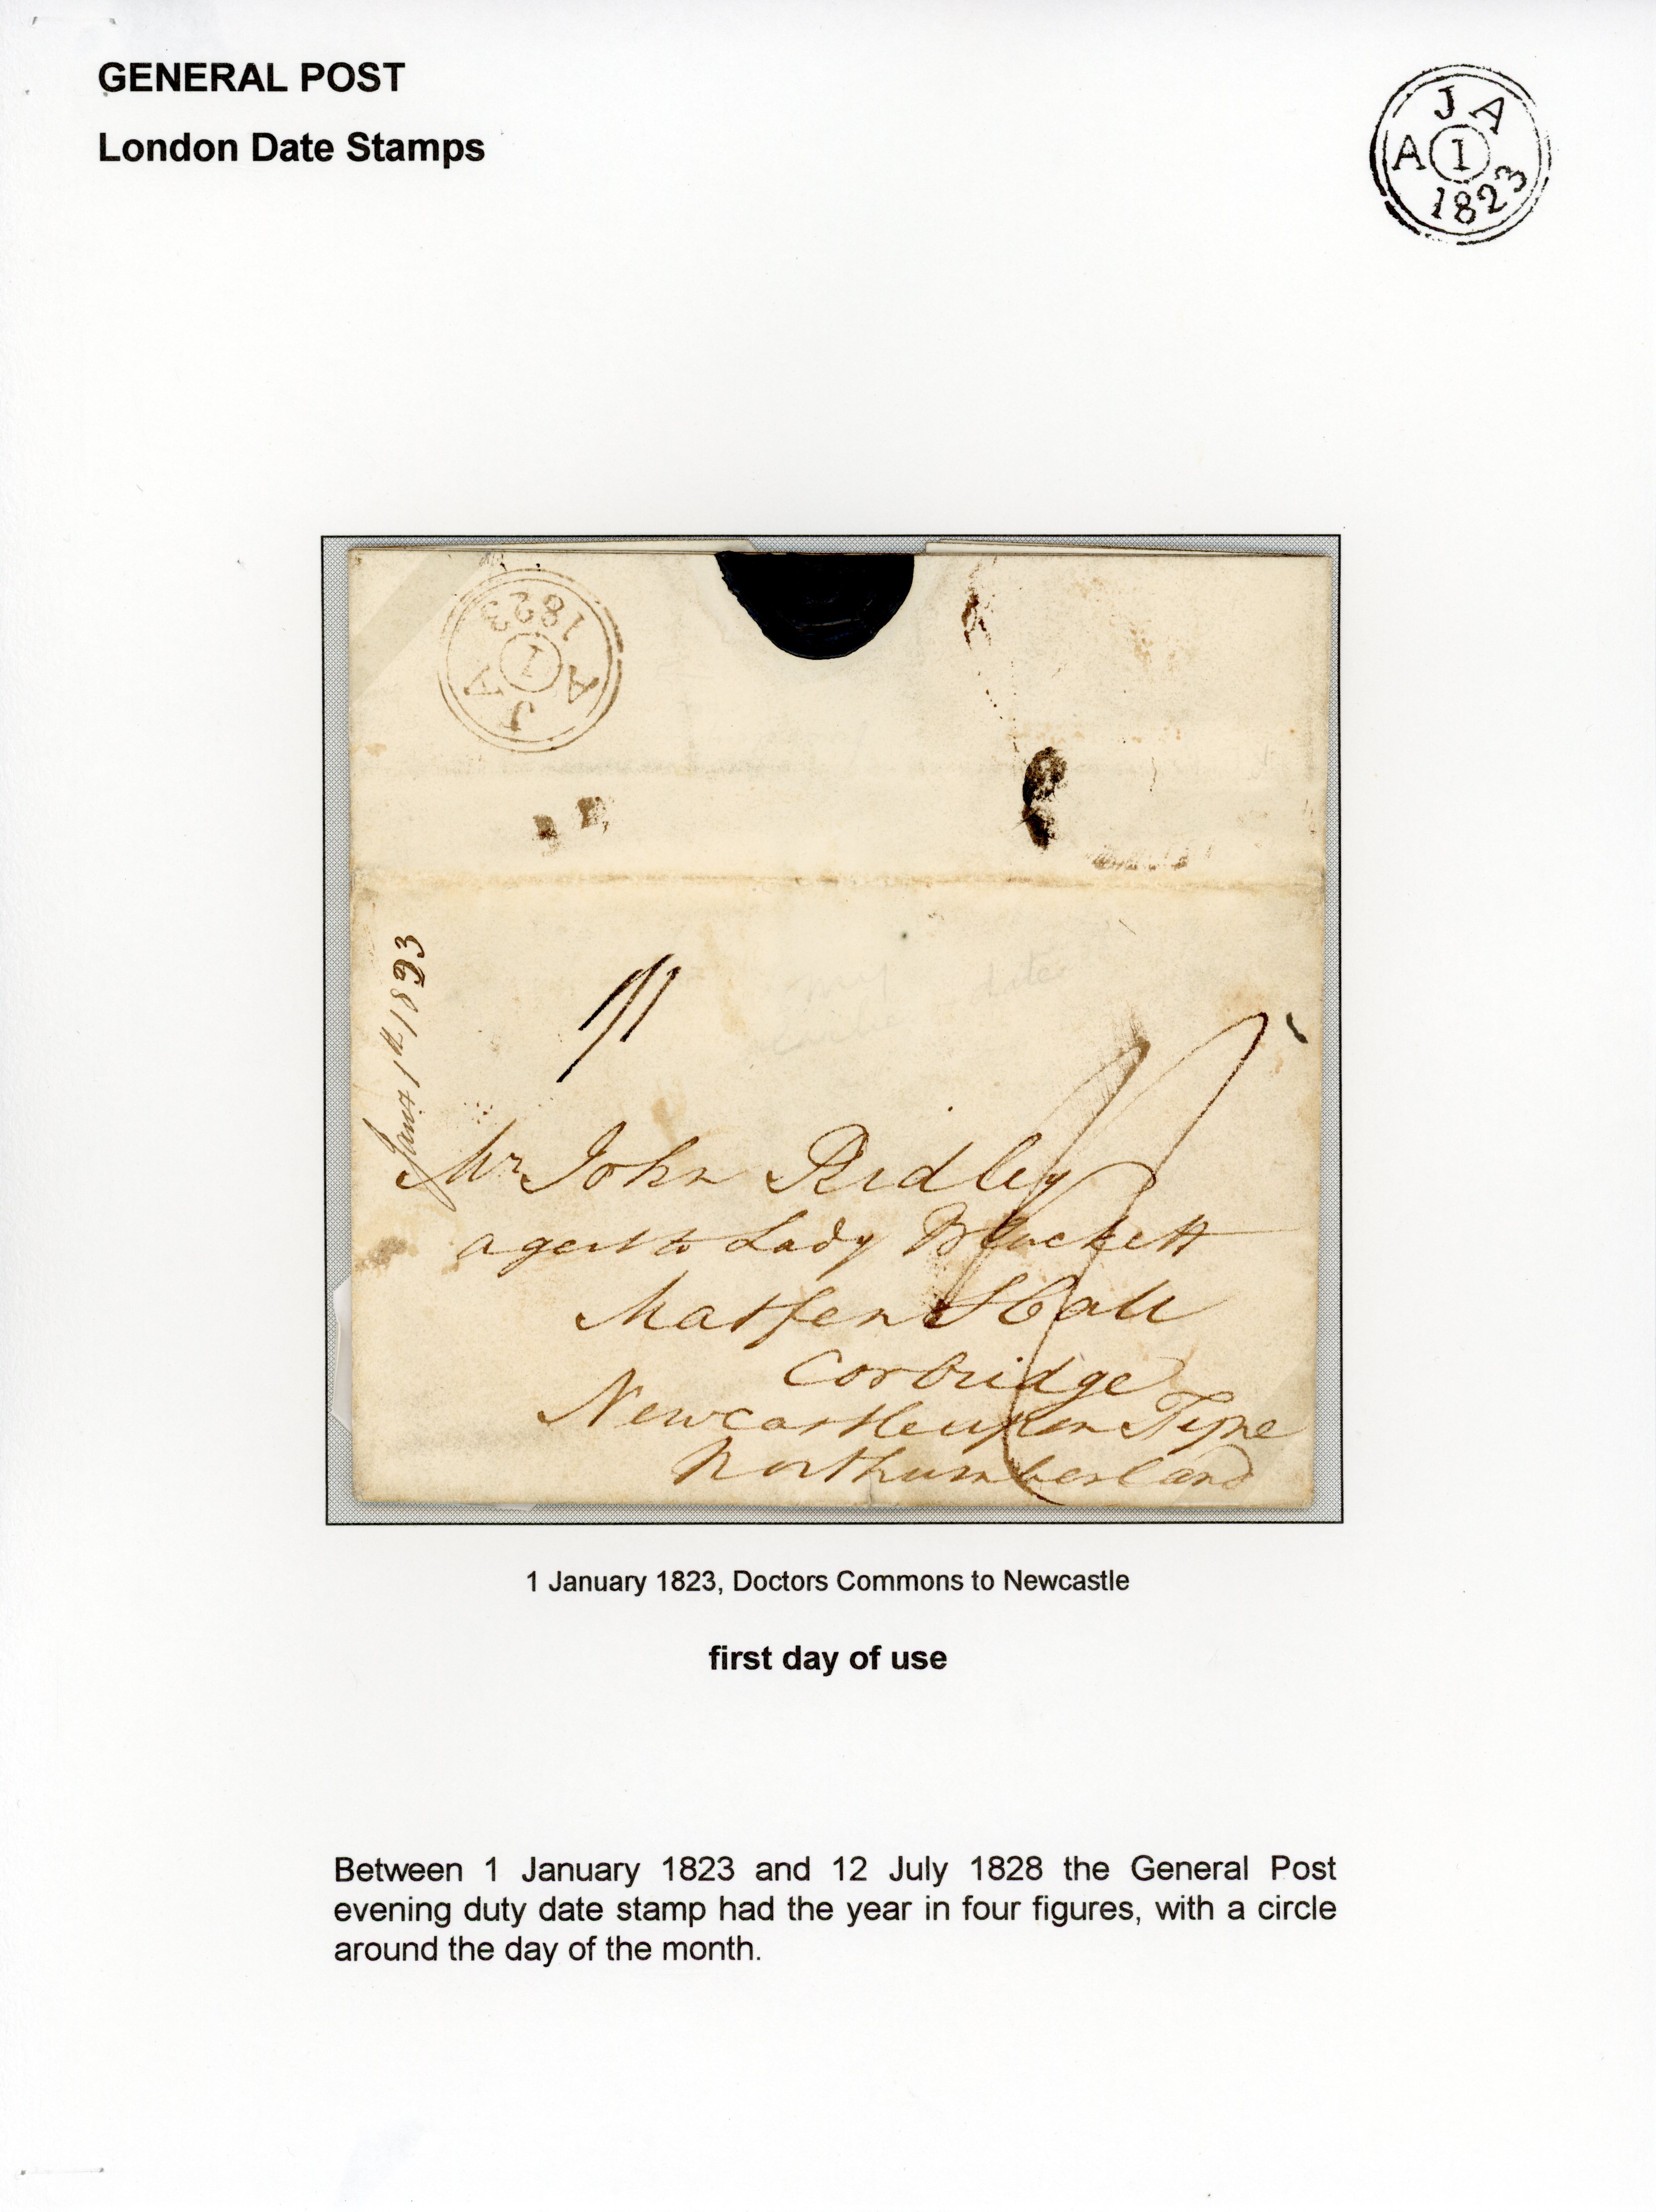 GENERAL POST
London Date Stamps
J A
A 1
1823
1823
1 A
J A
Jany 1st 1823
my
date
earlie
Mr John Ridley
agent to Lady Blackett
Matfen Hall
Corbridge
Newcastle upon Tyne
Northumberland
1 January 1823, Doctors Commons to Newcastle
first day of use
Between 1 January 1823 and 12 July 1828 the General Post
evening duty date stamp had the year in four figures, with a circle
around the day of the month.